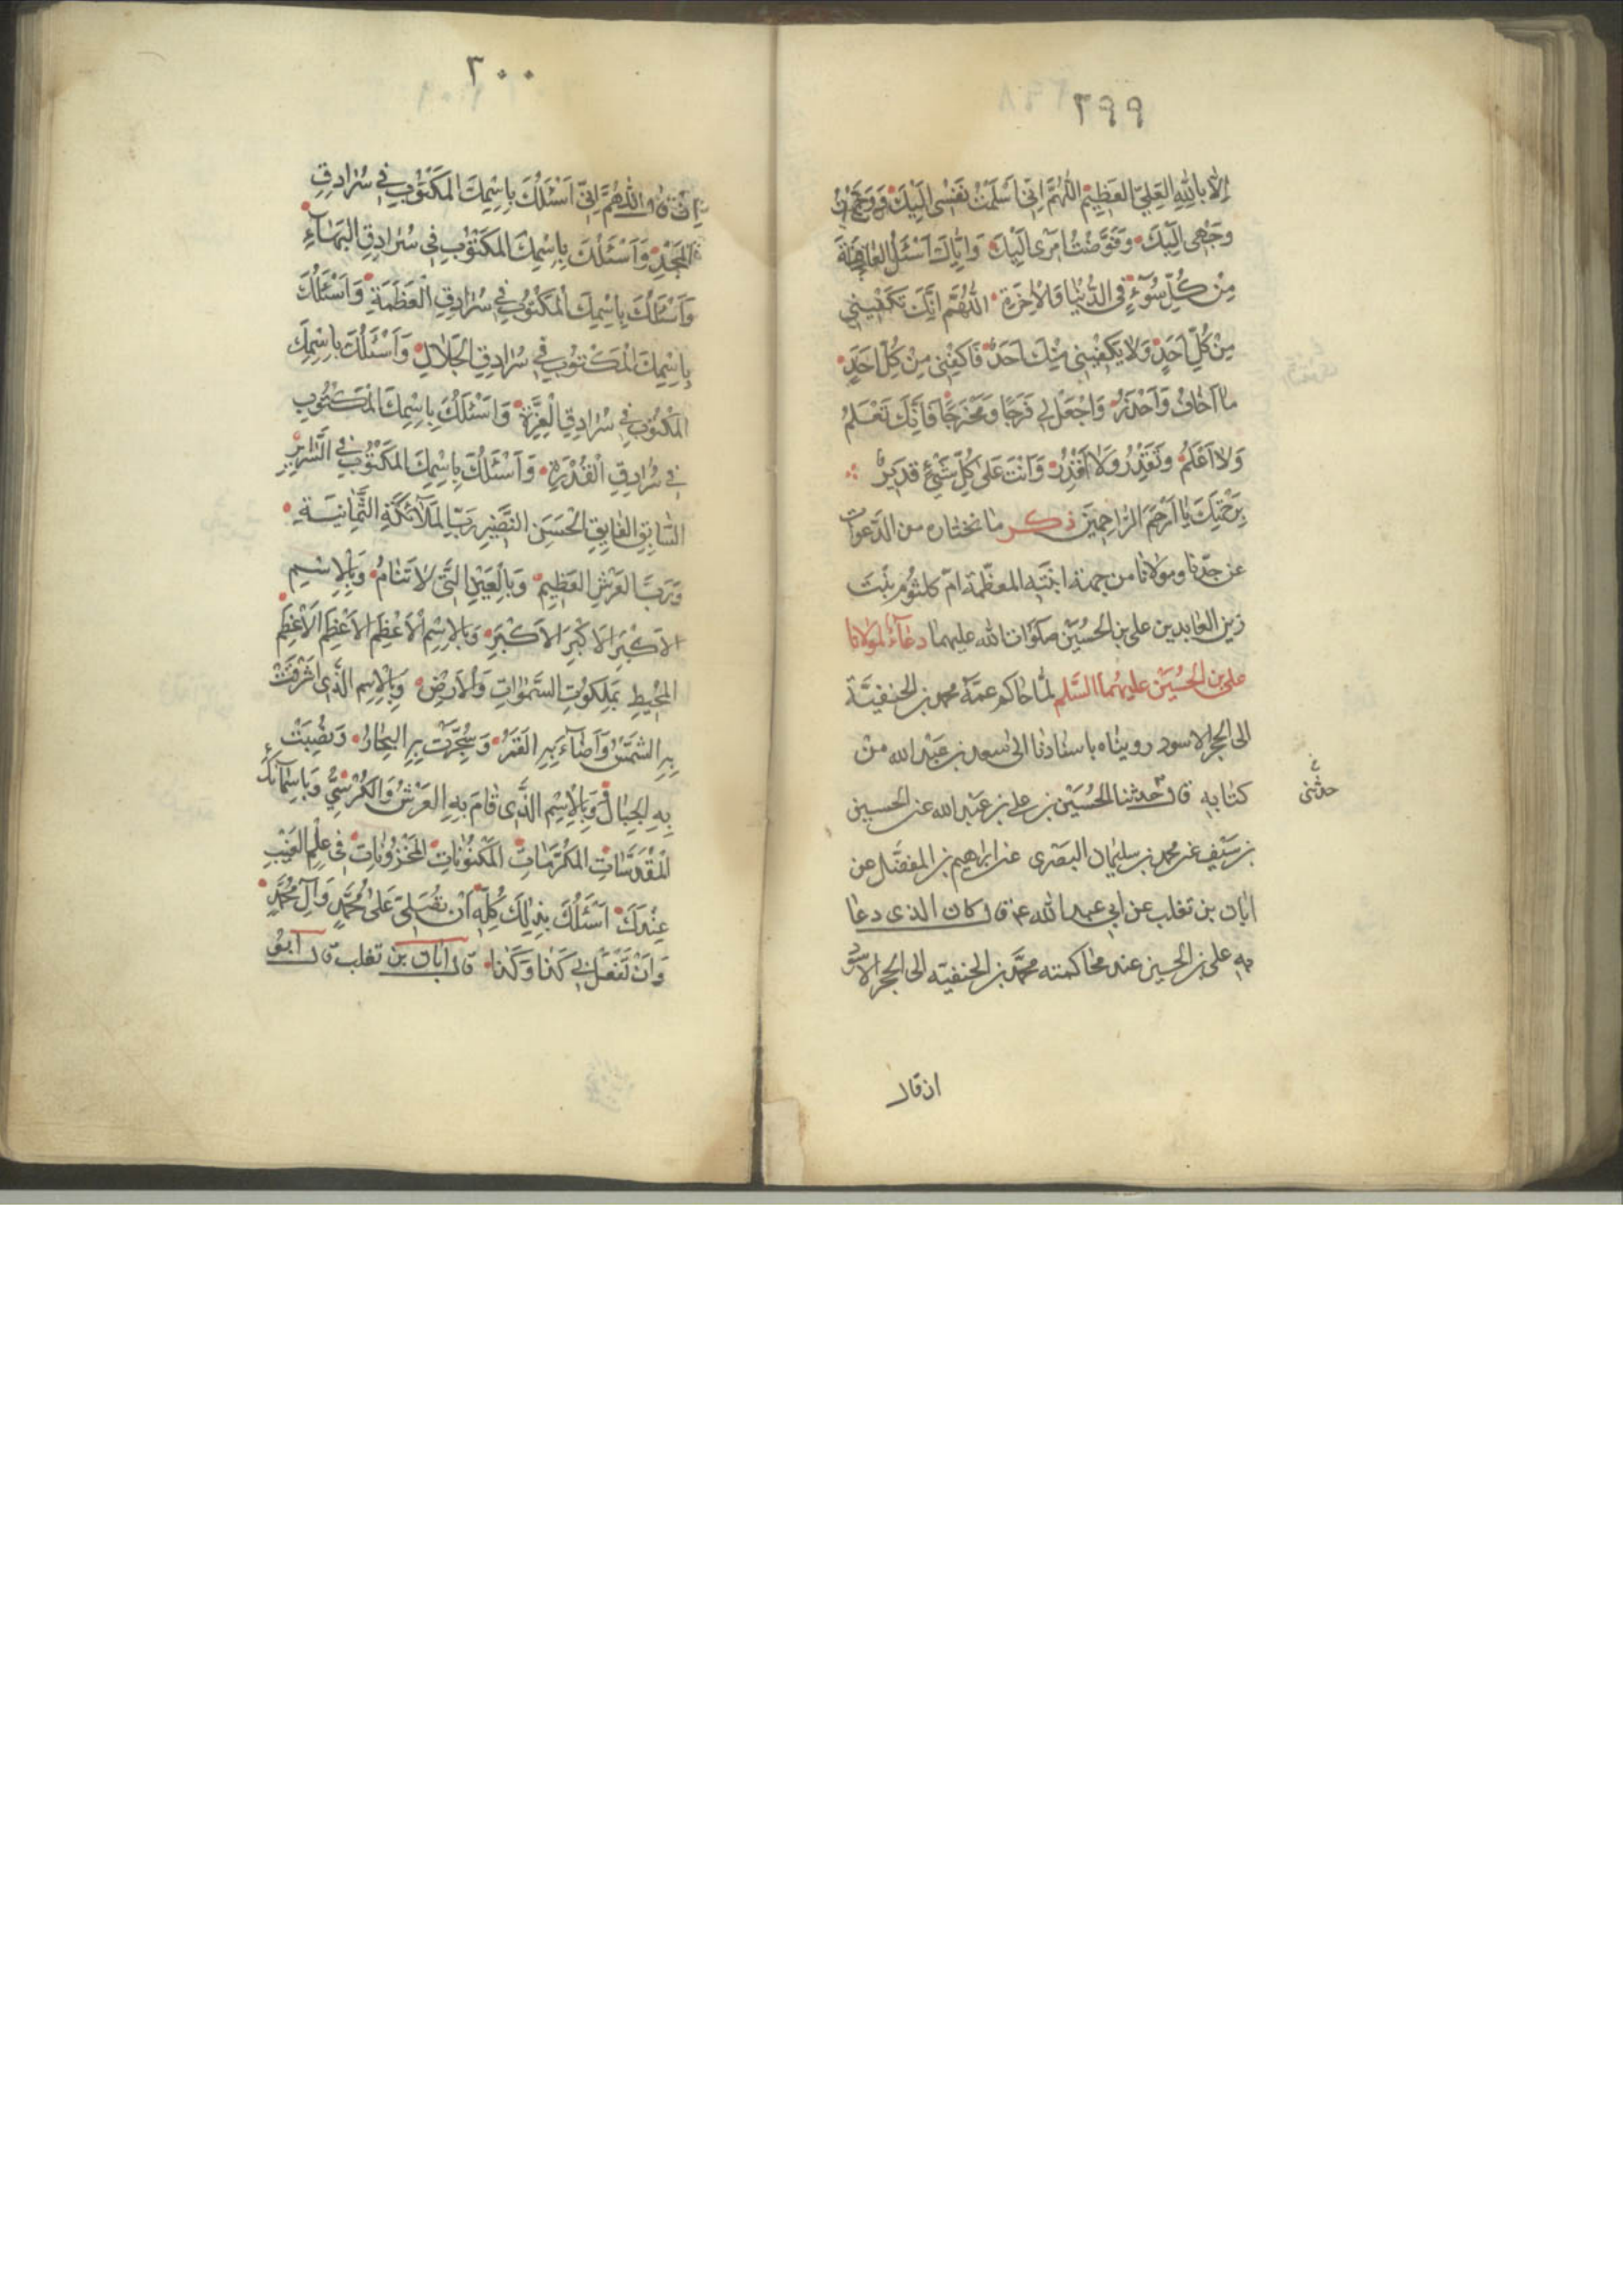 ٢٩٩
اِلّا بِاللهِ العَلِيِّ العَظِيْمِ اللّٰهُمَّ اِنّى اَسْلَمْتُ نَفْسْى اِلَيْكَ وَوَجَّهْتُ
وَجْهِى اِلَيْكَ وَفَوَّضْتُ اَمْرِى اِلَيْكَ وَاِيّاكَ اَسْئَلُ العٰافِيَةَ
مِنْ كُلِّ سُوٓءٍ فِى الدُّنْيٰا وَالاٰخِرَةِ اللّٰهُمَّ اِنَّكَ تَكْفْيِنْي
مِنْ كُلِّ اَحَدٍ وَلٰا يَكْفْيِنِى مِنْكَ اَحَدٌ فَاكْفِنِى مِنْ كُلِّ اَحَدٍ
مٰا اَخٰافُ وَاَحْذَرُ وَاجْعَلْ لِي فَرَجًا وَمَخْرَجًا فَاِنَّكَ تَعْلَمُ
وَلٰا اَعْلَمُ وَتَقْدِرُ وَلٰا اَقْدِرُ وَاَنْتَ عَلىٰ كُلِّ شَيْئٍ قَدِيرٌ
بِرَحْمَتِكَ يٰا اَرْحَمَ الرّٰاحِمِيْنَ ذكر مٰا نختاره من الدَّعوات
عن جدّنا ومولانا من جهة ابنته المعظّمة امّ كلثوم بنت
زين العابدين على بن الحُسَيْن صَلَوٰات الله عليهما دعآءُ لمولانا
على بن الحُسَيْن عليهُمَا السَّلم لمّا حاكم عمّه محمد بن الحنفيّة
الى الحجر الاسود رويناه باسنادنا الى سعد بن عَبْد الله من
كتابه قال حدثنا الحُسَيْن بن على بن عَبْد الله عن الحسين
حدثنى
بن سَيْف عن محمد بن سليمان البصرى عن ابراهيم بن المفضّل عن
ابان بن تغلب عن ابي عبد الله ع قال كان الذى دعا
به على بن الحسين عند محاكمته محمَّد بن الحنفيّه الى الحجر الاسود
ان قال
٣٠٠
اِنْ قٰال اللّٰهُمَّ اِنّىِ اَسْئَلُكَ بِاِسْمِكَ المَكْتُوْبِ فِي سُرٰادِقِ
المَجْدِ وَاَسْئَلُكَ بِاِسْمِكَ المَكْتُوْبِ فِي سُرٰادِقِ البَهٰآءِ
وَاَسْئَلُكَ بِاِسْمِكَ المَكْتُوْبِ فِي سُرٰادِقِ العَظَمَةِ وَاَسْئَلُكَ
بِاِسْمِكَ المَكْتُوْبِ فِي سُرٰادِقِ الجَلٰالِ وَاَسْئَلُكَ بِاِسْمِكَ
المَكْتُوْبِ فِي سُرٰادِقِ الْعِزَّةِ وَاَسْئَلُكَ بِاِسْمِكَ المَكْتُوْبِ
فِي سُرٰادِقِ الْقُدْرَةِ وَاَسْئَلُكَ بِاِسْمِكَ المَكْتُوْبِ فِي السَّرٰايِرِ
السّٰابِقِ الفٰايِقِ الحَسَنِ النَّضِيْرِ رَبِّ المَلٰآئِكَةِ الثَّمٰانِيَةِ
وَرَبِّ العَرْشِ العَظِيْمِ وَبِالعَيْنِ الَّتى لٰا تَنٰامُ وَبِالْاِسْمِ
الاَكْبَرِ الاَكْبَرِ الاَكْبَرِ وَبِالاِسْمِ الاَعْظَمِ الاَعْظَمِ الاَعْظَمِ
المُحْيِطِ بِمَلَكُوْتِ السَّمٰوٰاتِ وَالاَرْضِ وَبِالْاِسْمِ الَّذى اَشْرَقَتْ
بِهِ الشَّمْسُ وَاَضٰآءَ بِهِ القَمَرُ وَسُجِّرَتْ بِهِ البِحٰارُ وَنُصِبَتْ
بِهِ الجِبٰالُ وَبِالْاِسْمِ الَّذى قٰامَ بِهِ العَرْشُ وَالكُرْسِيُّ وَبِاَسْمٰآئِكَ
المُقَدَّسٰاتِ المُكَرَّمٰاتِ المَكْنُوْنٰاتِ المَخْزُوْنٰاتِ فِى عِلْمِ الغَيْبِ
عِنْدَكَ اَسْئَلُكَ بِذٰلِكَ كُلِّهِ اَنْ تُصَلِّىَ عَلىٰ مُحَمَّدٍ وَآلِ مُحَمَّدٍ
وَاَنْ تَفْعَلَ بِي كَذٰا وَكَذٰا قال ابان بن تغلب قال ابو